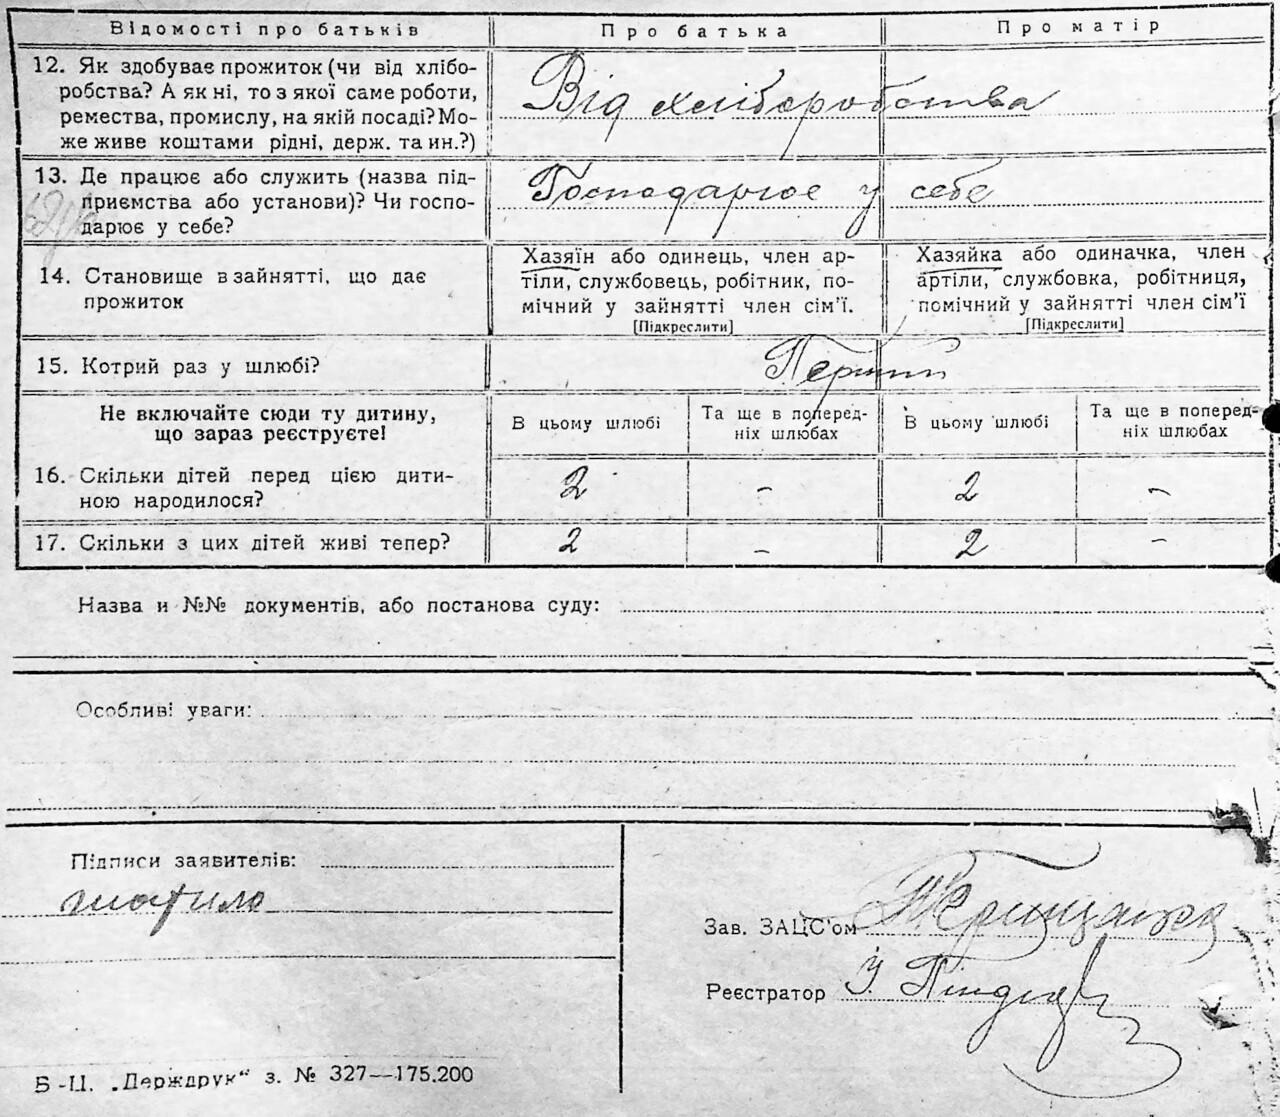 Відомості про батьків
Про батька
Про матір
12. Як здобуває прожиток (чи від хлібо-
робства? А як ні, то з якої саме роботи,
ремества, промислу, на якій посаді? Мо-
же живе коштами рідні, держ. та ин.?)
Від хліборобства
13. Де працює або служить (назва під-
приємства або установи)? Чи госпо-
дарює у себе?
Господарює у себе
14. Становище в зайнятті, що дає
прожиток
Хазяїн або одинець, член ар-
тіли, службовець, робітник, по-
мічний у зайнятті член сім'ї.
[Підкреслити]
Хазяйка або одиначка, член
артіли, службовка, робітниця,
помічний у зайнятті член сім'ї
[Підкреслити]
15. Котрий раз у шлюбі?
Перший
Не включайте сюди ту дитину,
що зараз реєструєте!
В цьому шлюбі
Та ще в поперед-
ніх шлюбах
В цьому шлюбі
Та ще в поперед-
ніх шлюбах
16. Скільки дітей перед цією дити-
ною народилося?
2 - 2 -
17. Скільки з цих дітей живі тепер?
2 - 2 -
Назва и №№ документів, або постанова суду:
Особливі уваги:
Підписи заявителів:
Зав. ЗАЦС'ом
Реєстратор
Б-Ц. „Держдрук" з. № 327—175.200